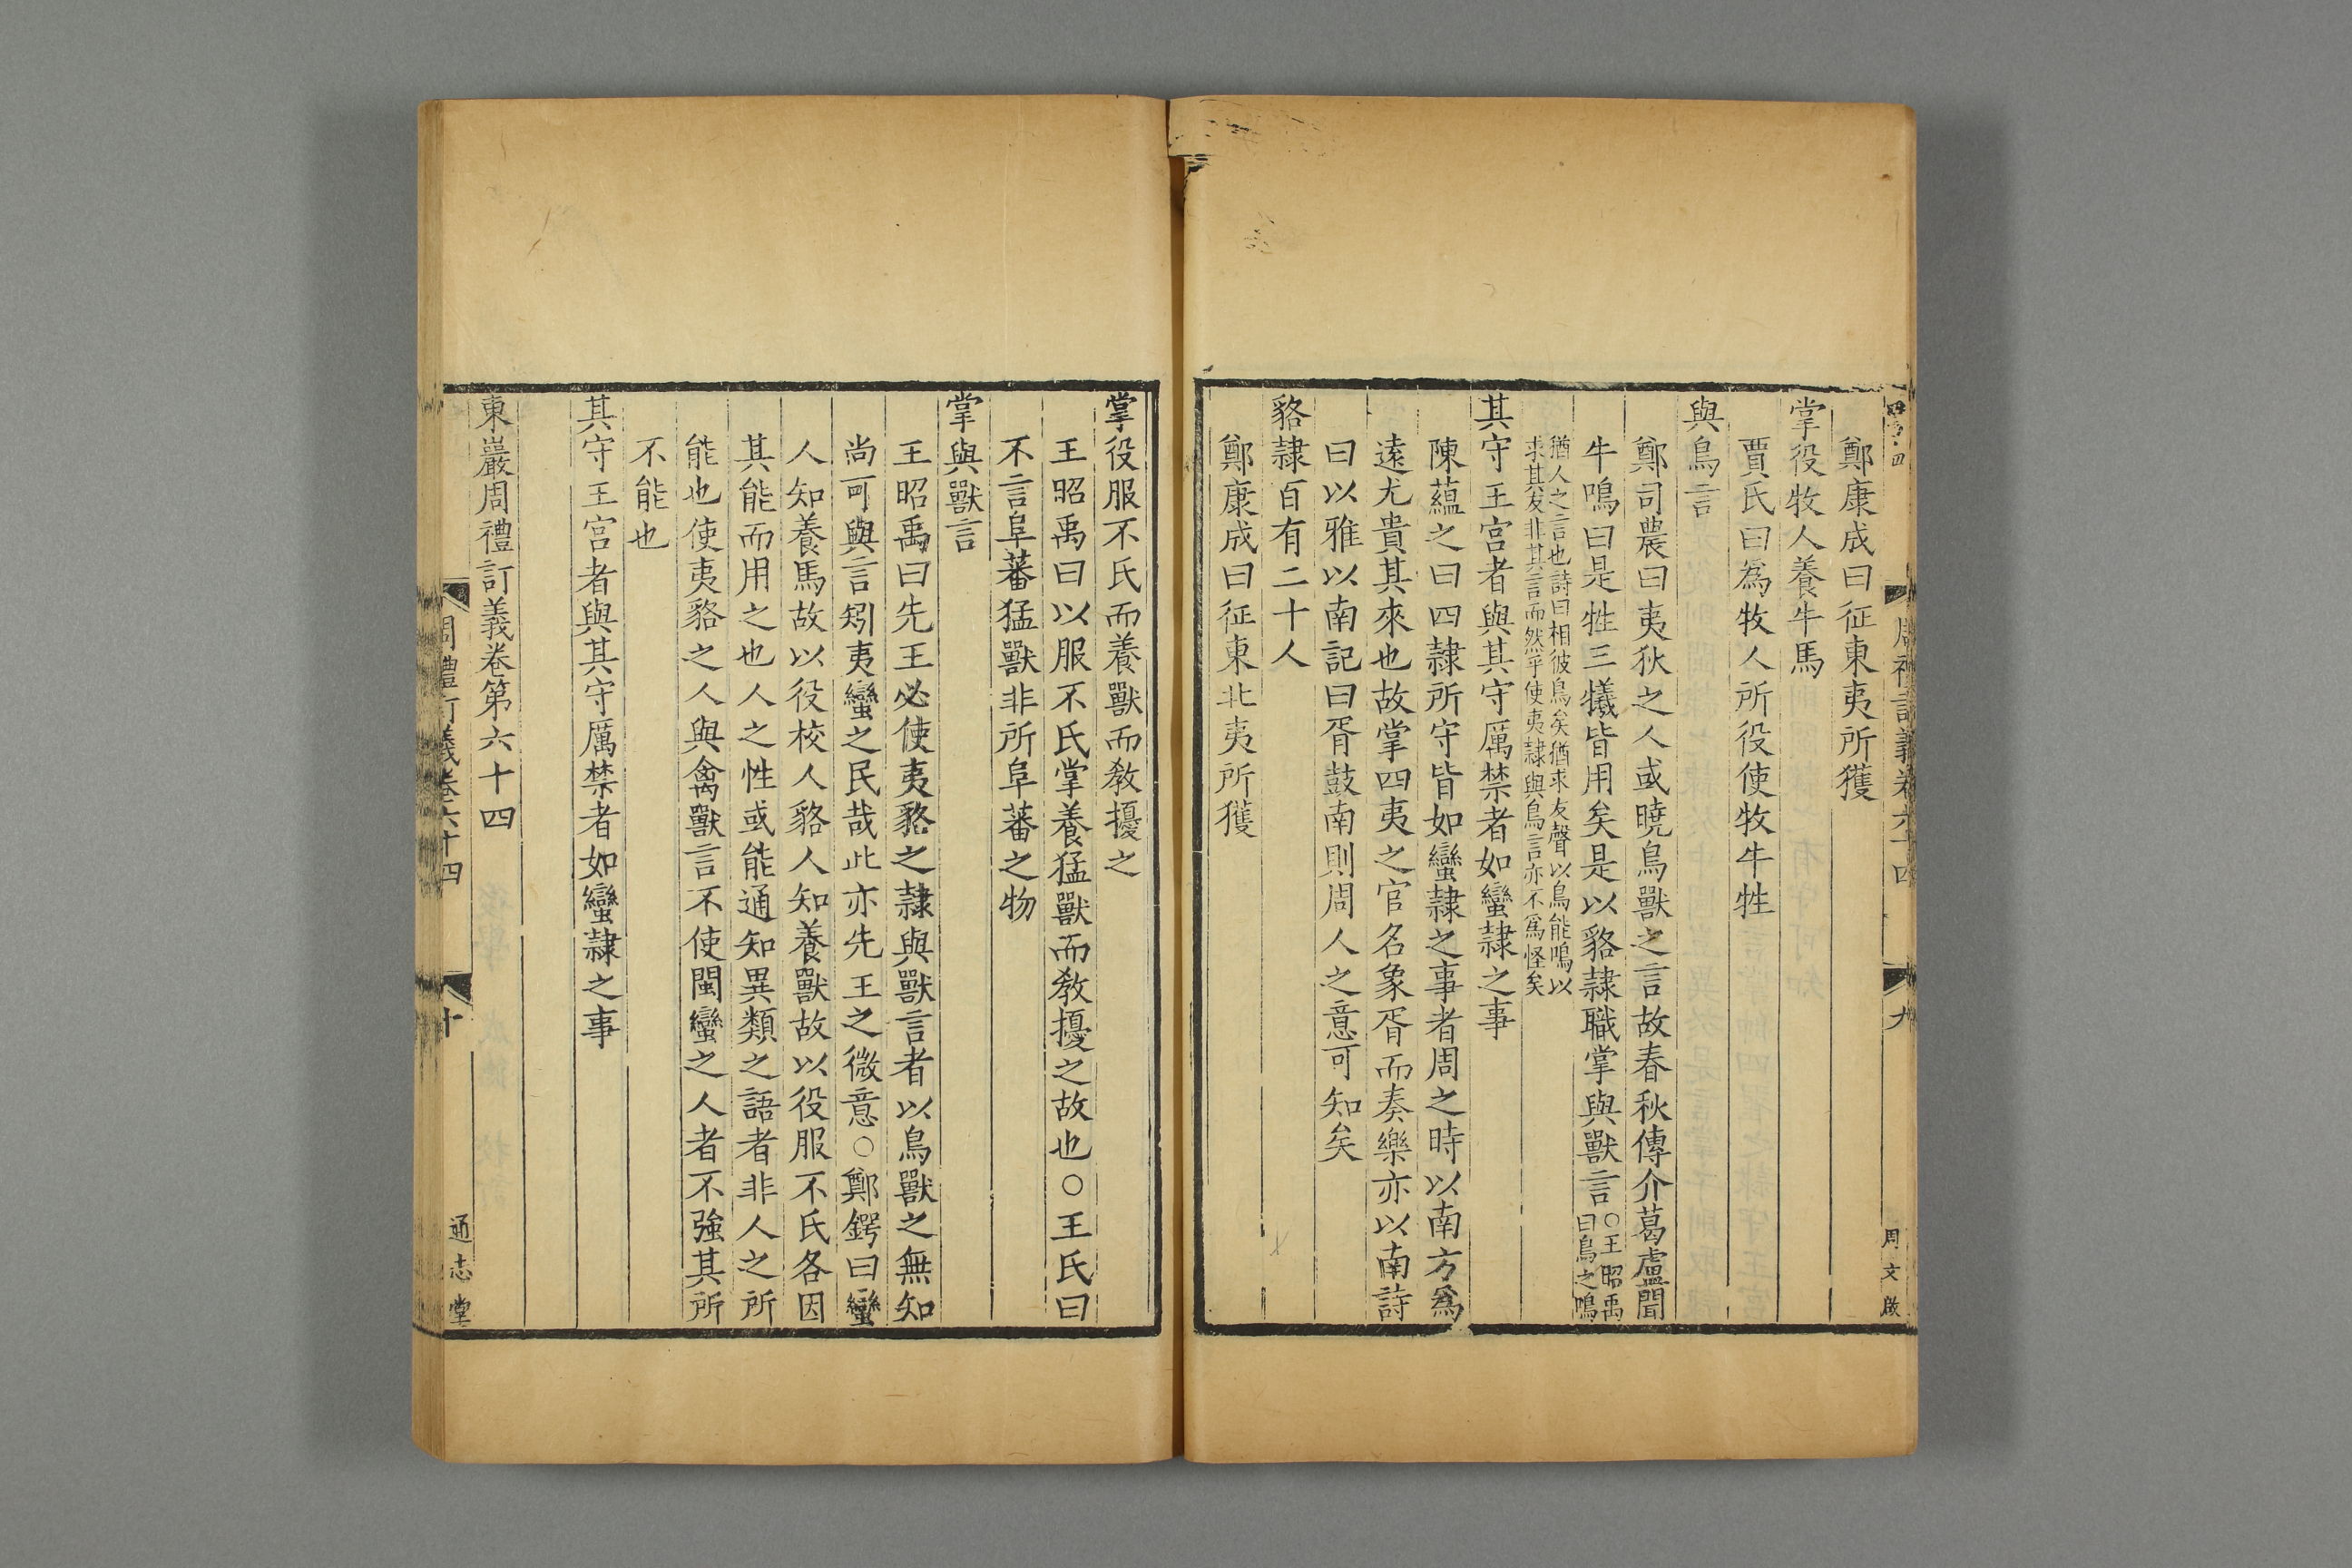 鄭康成曰征東夷所獲
掌役牧人養牛馬
賈氏曰爲牧人所役使牧牛牲
與鳥言
鄭司農曰夷狄之人或曉鳥獸之言故春秋傳介葛盧聞
牛鳴曰是牲三犧皆用矣是以貉隷職掌與獸言○王昭禹曰鳥之鳴
猶人之言也詩曰相彼鳥矣猶求友聲以鳥能鳴以
求其友非其言而然乎使夷隷與鳥言亦不爲怪矣
其守王宮者與其守厲禁者如蠻隷之事
陳蘊之曰四隷所守皆如蠻隷之事者周之時以南方爲
遠尤貴其來也故掌四夷之官名象胥而奏樂亦以南詩
曰以雅以南記曰胥鼓南則周人之意可知矣
貉隷百有二十人
鄭康成曰征東北夷所獲
周禮訂義卷六十四
九
周文啟
掌役服不氏而養獸而教擾之
王昭禹曰以服不氏掌養猛獸而教擾之故也○王氏曰
不言阜蕃猛獸非所阜蕃之物
掌與獸言
王昭禹曰先王必使夷貉之隷與獸言者以鳥獸之無知
尚可與言矧夷蠻之民哉此亦先王之微意○鄭鍔曰蠻
人知養馬故以役校人貉人知養獸故以役服不氏各因
其能而用之也人之性或能通知異類之語者非人之所
能也使夷貉之人與禽獸言不使閩蠻之人者不強其所
不能也
其守王宮者與其守厲禁者如蠻隷之事
東巖周禮訂義卷第六十四
周禮訂義卷六十四
十
通志堂